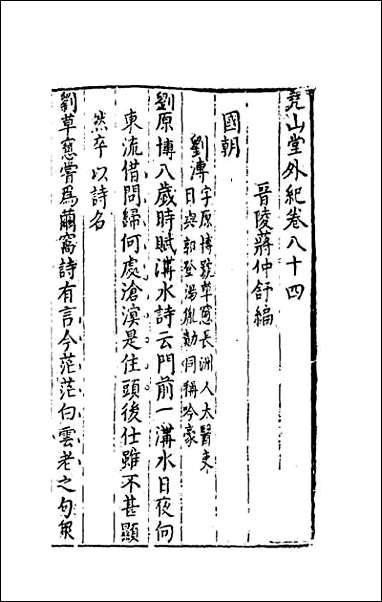 堯山堂外紀卷八十四
晉陵蔣仲舒編
國朝
劉溥字原博號草窓長洲人太醫吏
日與郭登湯胤勛同稱吟豪
劉原博八歲時賦溝水詩云門前一溝水日夜向
東流借問歸何處滄溟是住頭後仕雖不甚顯
然卒以詩名
劉草窓嘗爲繭窩詩有言今茫茫白雲老之句衆